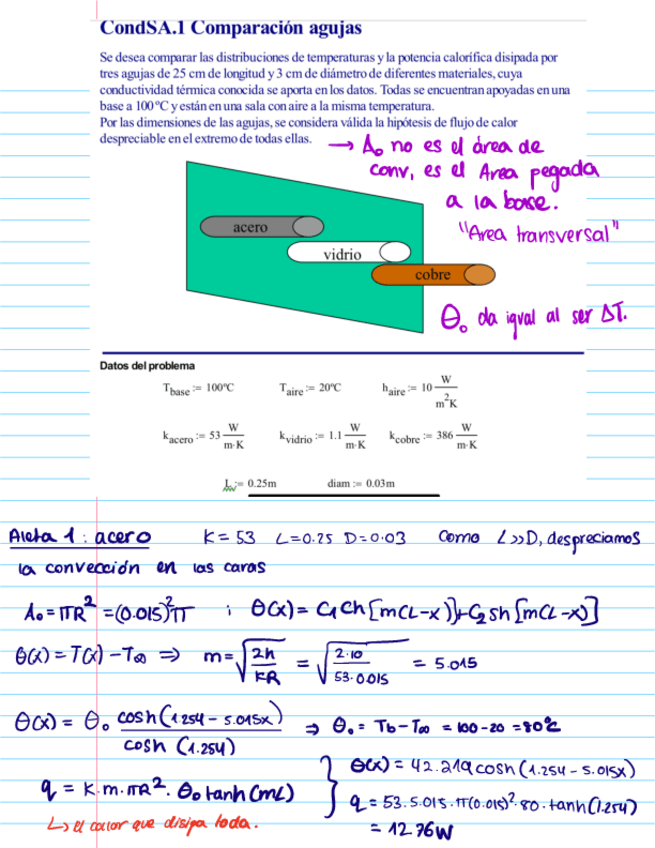 CondSA.1 Comparación agujas
Se desea comparar las distribuciones de temperaturas y la potencia calorífica disipada por
tres agujas de 25 cm de longitud y 3 cm de diámetro de diferentes materiales, cuya
conductividad térmica conocida se aporta en los datos. Todas se encuentran apoyadas en una
base a 100 ºC y están en una sala con aire a la misma temperatura.
Por las dimensiones de las agujas, se considera válida la hipótesis de flujo de calor
despreciable en el extremo de todas ellas.
→ A₀ no es el área de
conv, es el Area pegada
a la base.
"Area transversal"
acero
vidrio
cobre
θ₀ da igual al ser ΔT.
Datos del problema
T_base := 100ºC T_aire := 20ºC h_aire := 10 W/m²K
k_acero := 53 W/m·K k_vidrio := 1.1 W/m·K k_cobre := 386 W/m·K
L := 0.25m diam := 0.03m
Aleta 1: acero K = 53 L=0.25 D=0.03 Como L>>D, despreciamos
la convección en las caras
A₀ = πR² = (0.015)²π ; θ(x) = C₁Ch[m(L-x)]+C₂sh[m(L-x)]
θ(x) = T(x) - T∞ ⇒ m = √(2h/KR) = √(2·10/53·0.015) = 5.015
θ(x) = θ₀ cosh(1.254 - 5.015x)/cosh(1.254) ⇒ θ₀ = Tb - T∞ = 100 - 20 = 80ºC
θ(x) = 42.219 cosh(1.254 - 5.015x)
q = K·m·πR²·θ₀ tanh(mL)
q = 53·5.015·π(0.015)²·80·tanh(1.254)
↳ el calor que disipa toda.
= 12.76W